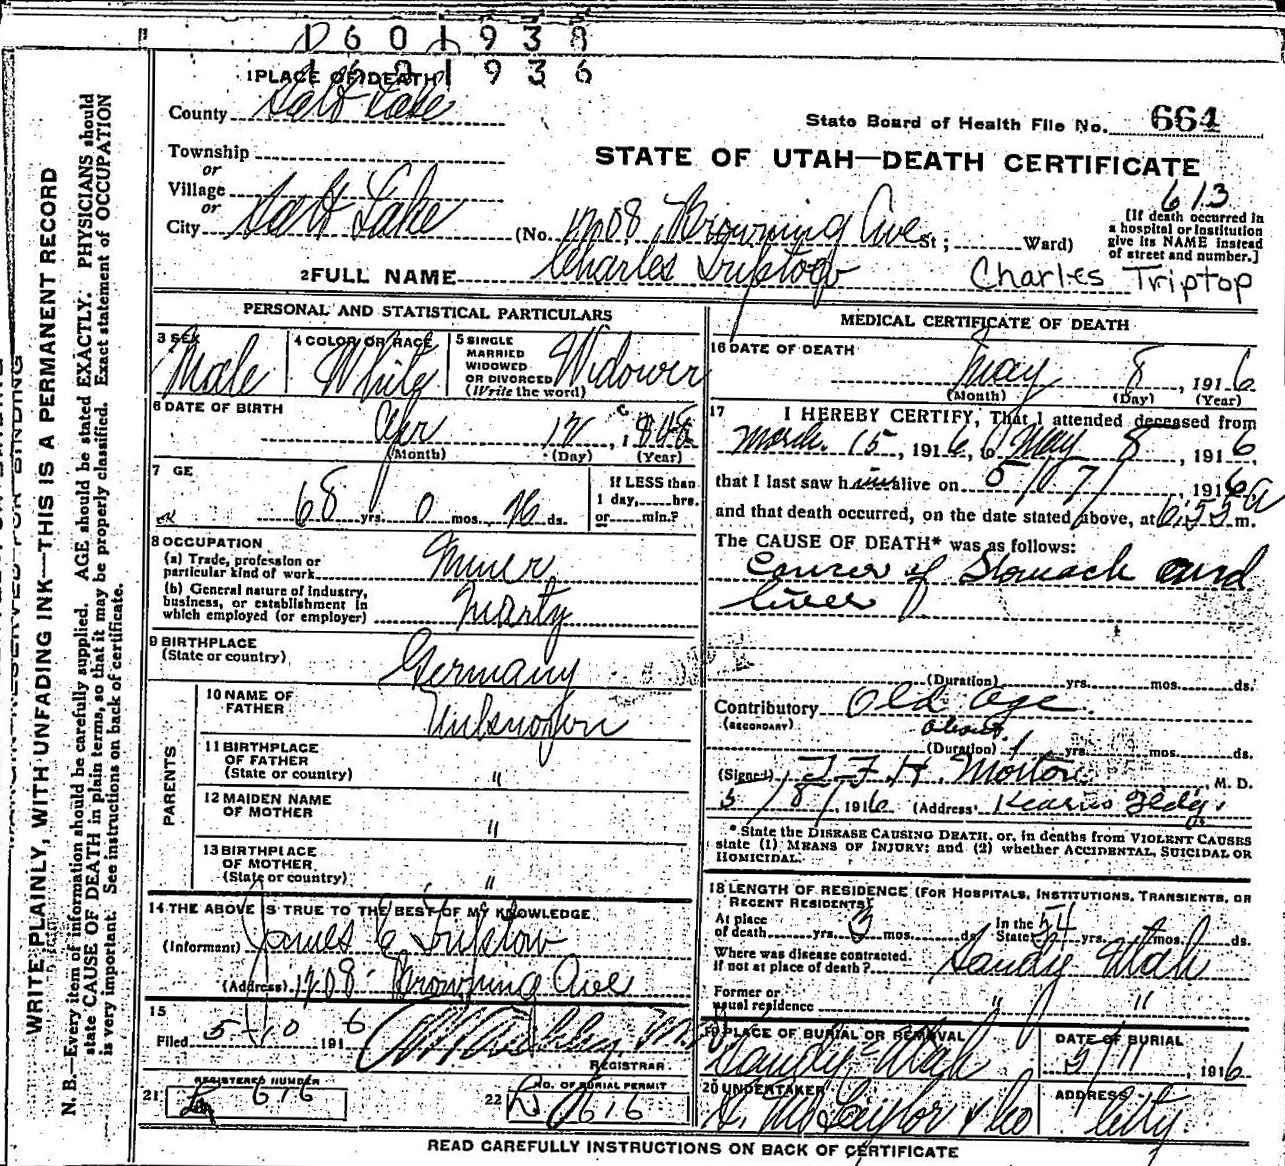 1601938
1601936
1 PLACE OF DEATH
County Salt Lake
State Board of Health File No. 664
Township
or
STATE OF UTAH—DEATH CERTIFICATE
Village
or
613
City Salt Lake (No. 1208 Browning Ave St; Ward)
[If death occurred in
a hospital or institution
give its NAME instead
of street and number.]
2 FULL NAME Charles Triptop Charles Triptop
PERSONAL AND STATISTICAL PARTICULARS
3 SEX Male
4 COLOR OR RACE White
5 SINGLE
MARRIED
WIDOWED
OR DIVORCED
(Write the word) Widower
6 DATE OF BIRTH
Apr 12, 1848
(Month) (Day) (Year)
7 GE
68 yrs. 0 mos. 26 ds.
If LESS than
1 day, hrs.
or min.?
8 OCCUPATION
(a) Trade, profession or
particular kind of work Miner
(b) General nature of industry,
business, or establishment in
which employed (or employer)
9 BIRTHPLACE
(State or country) Germany
PARENTS
10 NAME OF
FATHER Unknown
11 BIRTHPLACE
OF FATHER
(State or country) "
12 MAIDEN NAME
OF MOTHER "
13 BIRTHPLACE
OF MOTHER
(State or country) "
14 THE ABOVE IS TRUE TO THE BEST OF MY KNOWLEDGE
(Informant) James E Triptow
(Address) 1208 Browning Ave
15
Filed 5-10 1916
REGISTRAR
21 REGISTERED NUMBER 616
22 NO. OF BURIAL PERMIT 616
MEDICAL CERTIFICATE OF DEATH
16 DATE OF DEATH
May 8, 1916
(Month) (Day) (Year)
17 I HEREBY CERTIFY, That I attended deceased from
March 15, 1916, to May 8, 1916
that I last saw him alive on 5/07/ 1916
and that death occurred, on the date stated above, at 6:55 a m.
The CAUSE OF DEATH* was as follows:
Cancer of Stomach and
liver
(Duration) yrs. mos. ds.
Contributory Old Age
(SECONDARY)
about
(Duration) 1 yrs. mos. ds.
(Signed) Morton, M. D.
5/8/1916 (Address) Kearns Bldg.
* State the DISEASE CAUSING DEATH, or, in deaths from VIOLENT CAUSES
state (1) MEANS OF INJURY; and (2) whether ACCIDENTAL, SUICIDAL OR
HOMICIDAL.
18 LENGTH OF RESIDENCE (FOR HOSPITALS, INSTITUTIONS, TRANSIENTS, OR
RECENT RESIDENTS)
At place
of death yrs. 3 mos. ds. In the
State 54 yrs. mos. ds.
Where was disease contracted
if not at place of death? Sandy Utah
Former or
usual residence " "
19 PLACE OF BURIAL OR REMOVAL
Sandy Utah
DATE OF BURIAL
5/11 1916
20 UNDERTAKER
Taylor & Co
ADDRESS
City
READ CAREFULLY INSTRUCTIONS ON BACK OF CERTIFICATE
WRITE PLAINLY, WITH UNFADING INK—THIS IS A PERMANENT RECORD
N. B.—Every item of information should be carefully supplied. AGE should be stated EXACTLY. PHYSICIANS should
state CAUSE OF DEATH in plain terms, so that it may be properly classified. Exact statement of OCCUPATION
is very important. See instructions on back of certificate.